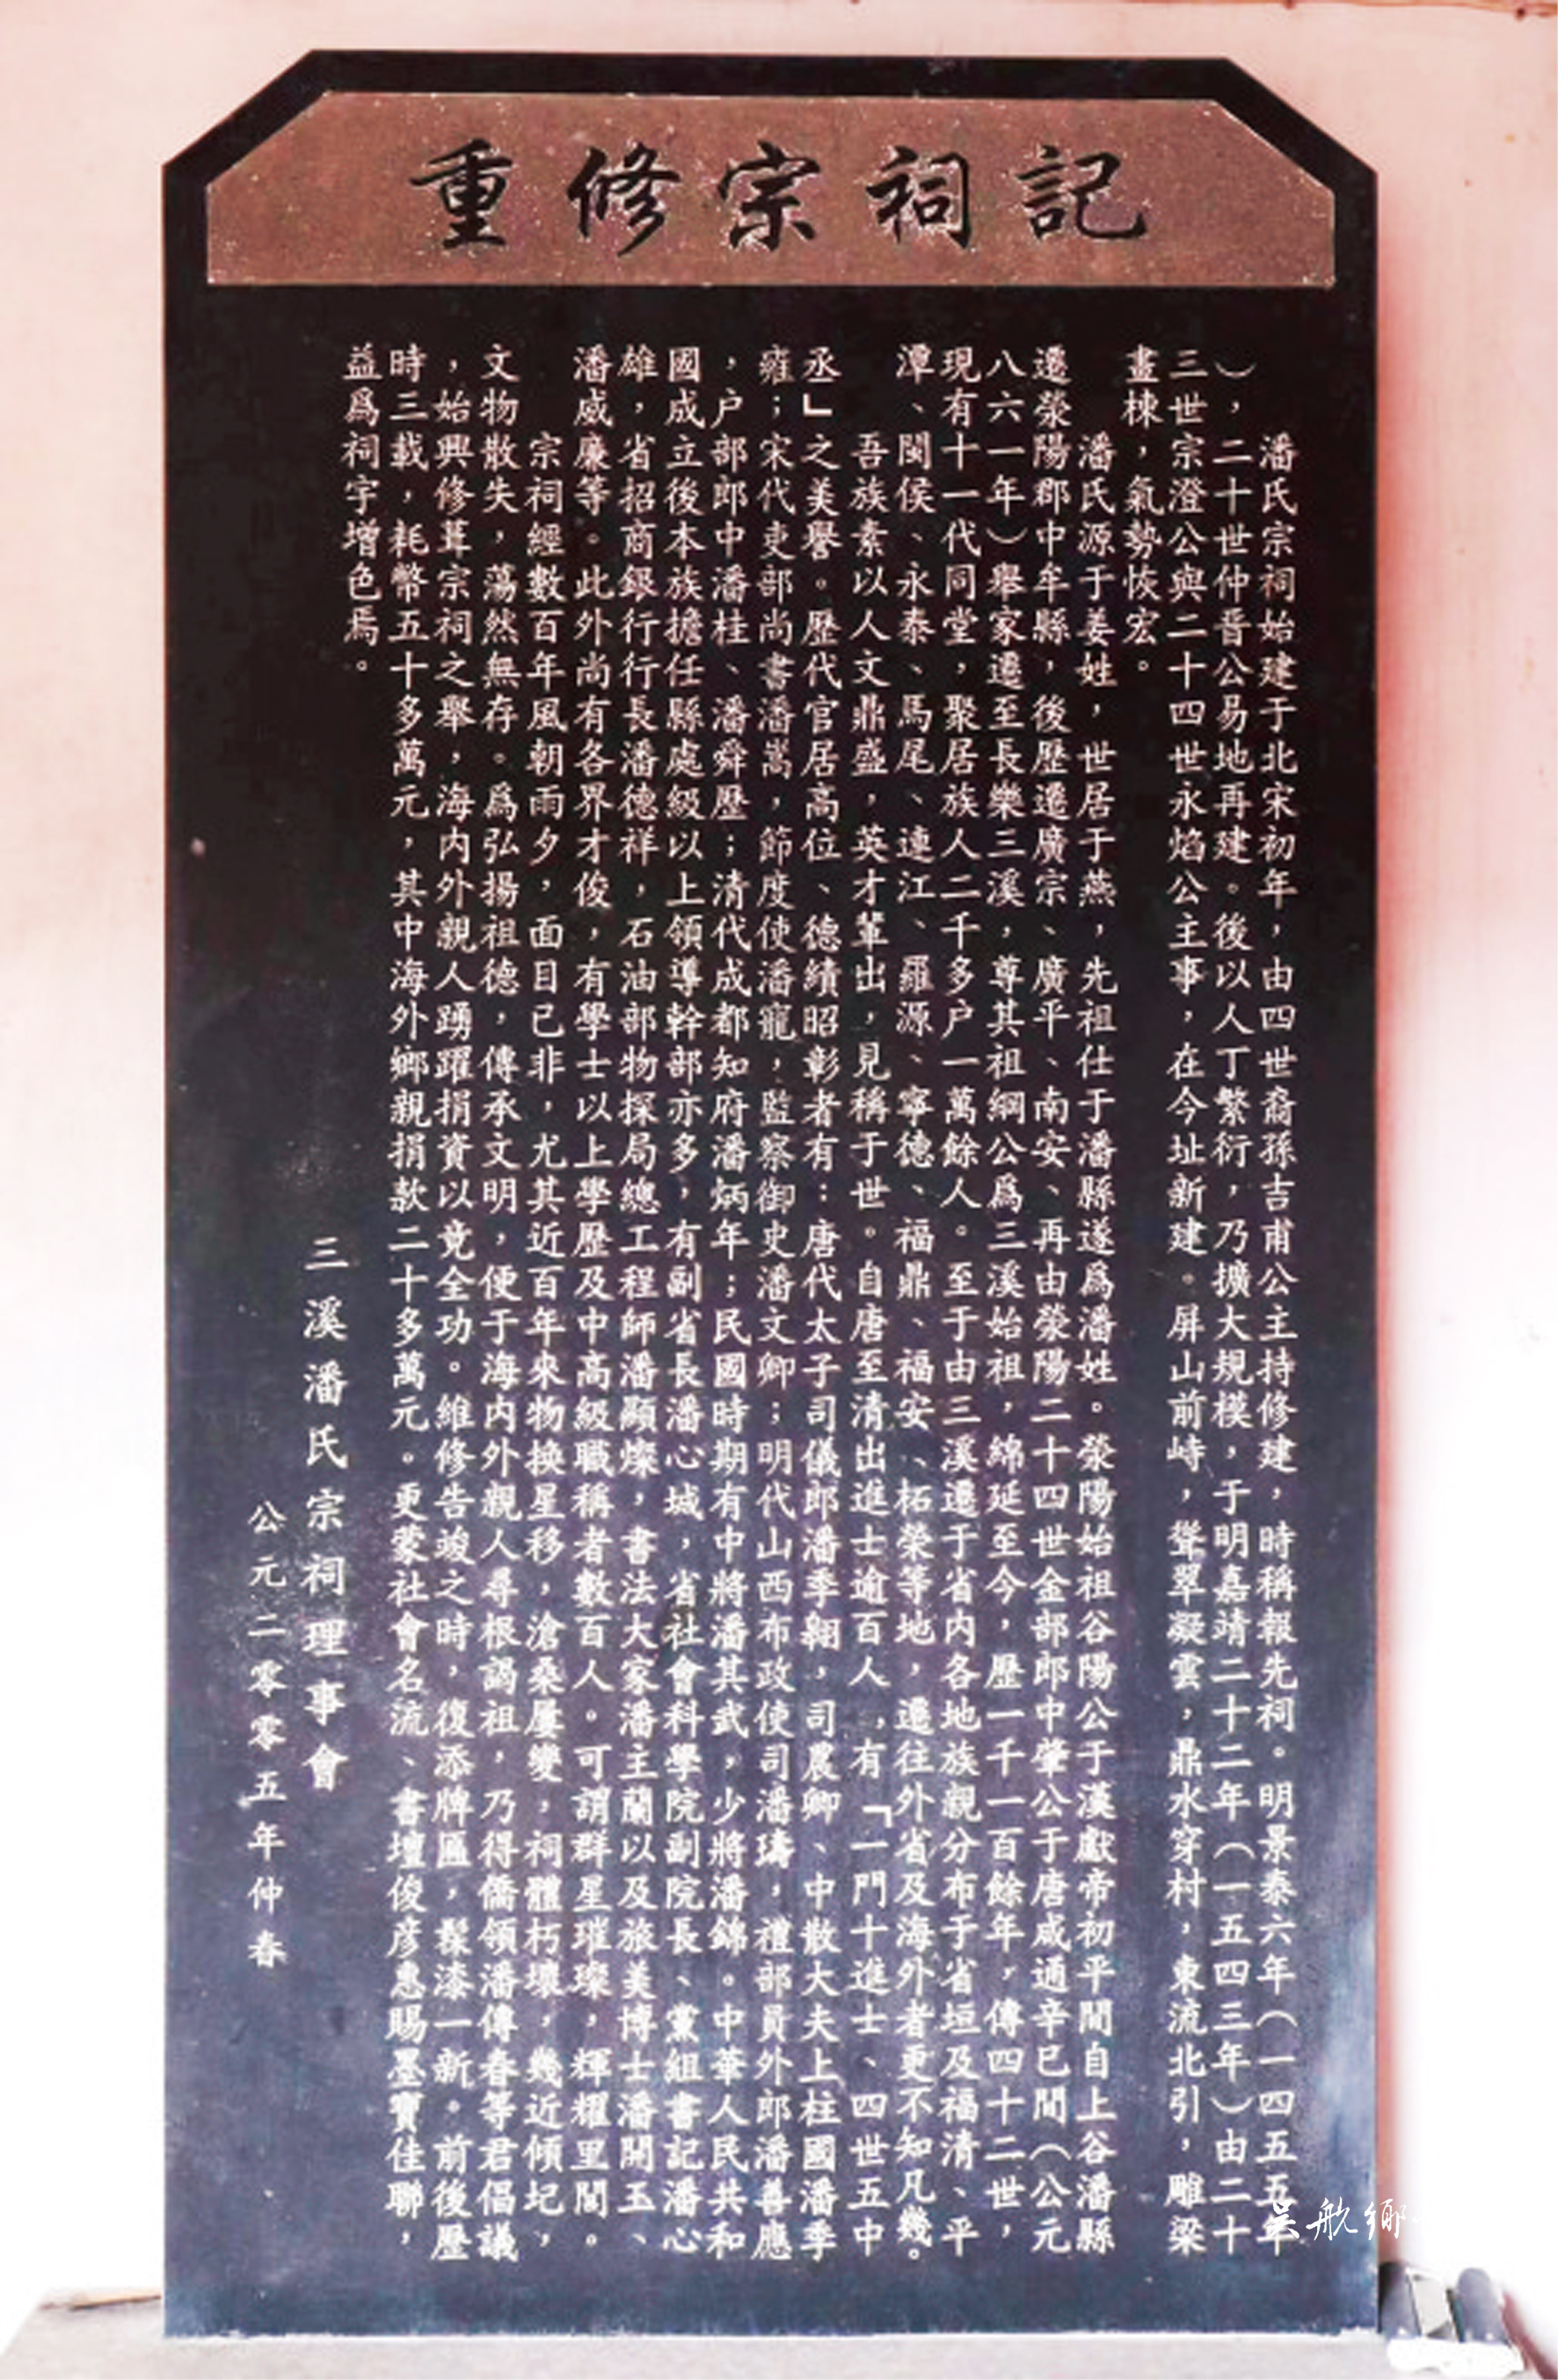 重修宗祠記
潘氏宗祠始建于北宋初年，由四世裔孫吉甫公主持修建，時稱報先祠。明景泰六年（一四五五年
），二十世仲晋公易地再建。後以人丁繁衍，乃擴大規模，于明嘉靖二十二年（一五四三年）由二十
三世宗澄公與二十四世永焰公主事，在今址新建。屏山前峙，聳翠凝雲，鼎水穿村，東流北引，雕梁
畫棟，氣勢恢宏。
潘氏源于姜姓，世居于燕，先祖仕于潘縣遂爲潘姓。滎陽始祖谷陽公于漢獻帝初平間自上谷潘縣
遷滎陽郡中牟縣，後歷遷廣宗、廣平、南安、再由滎陽二十四世金部郎中肇公于唐咸通辛巳間（公元
八六一年）舉家遷至長樂三溪，尊其祖綱公爲三溪始祖，綿延至今，歷一千一百餘年，傳四十二世，
現有十一代同堂，聚居族人二千多户一萬餘人。至于由三溪遷于省内各地族親分布于省垣及福清、平
潭、閩侯、永泰、馬尾、連江、羅源、寧德、福鼎、福安、柘榮等地，遷往外省及海外者更不知凡幾。
吾族素以人文鼎盛，英才輩出，見稱于世。自唐至清出進士逾百人，有「一門十進士、四世五中
丞」之美譽。歷代官居高位、德績昭彰者有：唐代太子司儀郎潘季翱，司農卿、中散大夫上柱國潘季
雍；宋代吏部尚書潘嵩，節度使潘寵，監察御史潘文卿；明代山西布政使司潘璹，禮部員外郎潘善應
，户部郎中潘桂、潘舜歷；清代成都知府潘炳年；民國時期有中將潘其武，少將潘錦。中華人民共和
國成立後本族擔任縣處級以上領導幹部亦多，有副省長潘心城，省社會科學院副院長、黨組書記潘心
雄，省招商銀行行長潘德祥，石油部物探局總工程師潘顯燦，書法大家潘主蘭以及旅美博士潘開玉、
潘威廉等。此外尚有各界才俊，有學士以上學歷及中高級職稱者數百人。可謂群星璀璨，輝耀里閭。
宗祠經數百年風朝雨夕，面目已非，尤其近百年來物换星移，滄桑屢變，祠體朽壞，幾近傾圮，
文物散失，蕩然無存。爲弘揚祖德，傳承文明，便于海内外親人尋根謁祖，乃得僑領潘傳春等君倡議
，始興修葺宗祠之舉，海内外親人踴躍捐資以竟全功。維修告竣之時，復添牌匾，髹漆一新。前後歷
時三載，耗幣五十多萬元，其中海外鄉親捐款二十多萬元。更蒙社會名流、書壇俊彦惠賜墨寶佳聯，
益爲祠宇增色焉。
三溪潘氏宗祠理事會
公元二零零五年仲春
吴航鄉